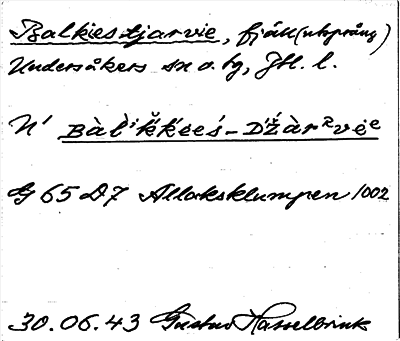 Balkiestjarvie, fjäll (utsprång)
Undersåkers sn o. tg, Jtl. l.
N' Bàl'ǩḱèeś-Dʹžàrᴿvėᵉ
G 65 D7 Allaksklumpen 1002
30.06.43 Gustav Hasselbrink